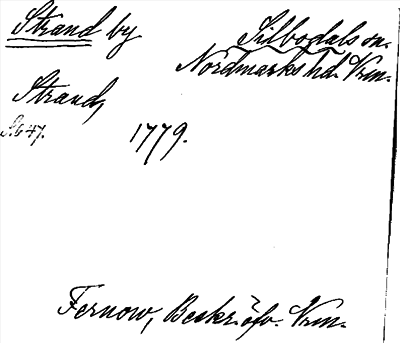 Strand by Silbodals sn.
Nordmarks hd. Vrm.
Strand,
S. 647. 1779.
Fernow, Beskr. öfv. Vrm.